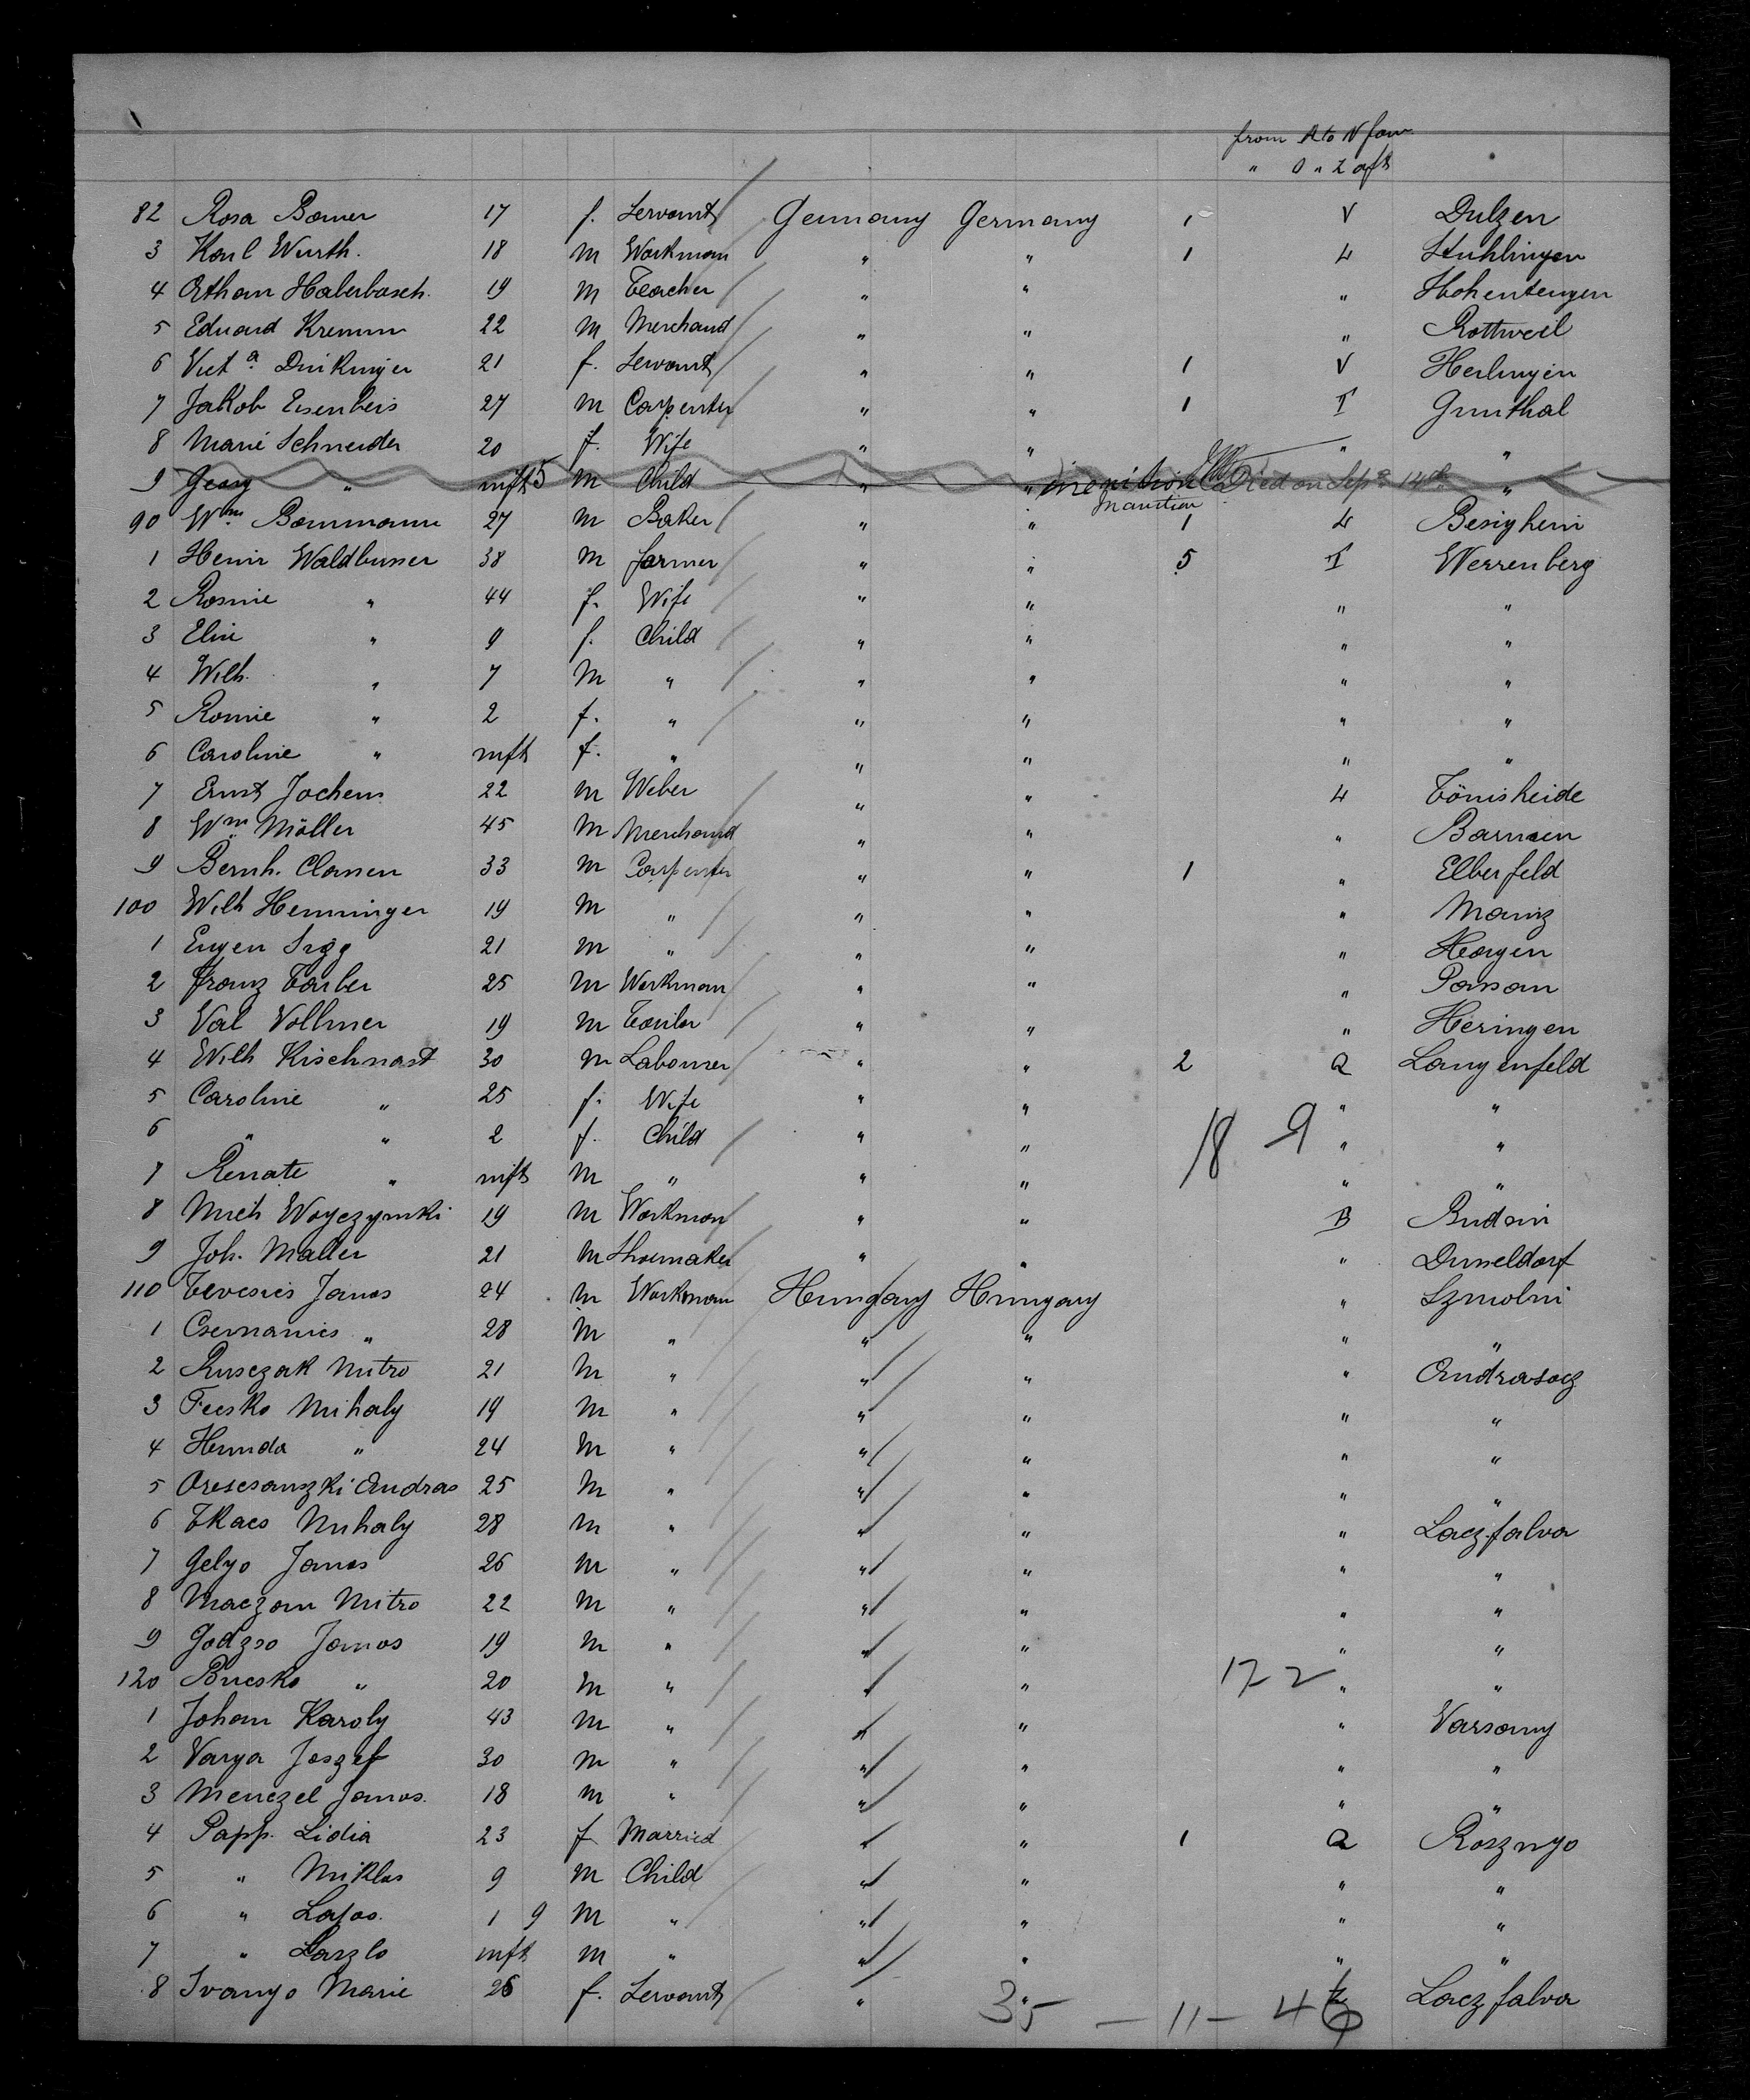 from A to N forw
" O " Z aft
82 Rosa Bauer 17 f. Servant Germany Germany 1 V Dulzen
3 Karl Wurth. 18 m Workman " " 1 4 Stuhlingen
4 Othmar Halerbosch. 19 m Teacher " " " Hohentengen
5 Eduard Kremm 22 m Merchand " " " Rottweil
6 Vict a Dinkinger 21 f. Servant " " 1 V Herlingen
7 Jakob Eisenbeis 27 m Carpenter " " 1 T Grunthal
8 Marie Schneider 20 f. Wife " " " "
9 Georg " inft 5 m Child " " inanition Died on Sep 14th "
Inanition
90 Wm Baumann 27 m Baker " " 1 4 Besigheim
1 Heinr Waldbusser 38 m farmer " " 5 T Werrenberg
2 Rosine " 44 f. Wife " " " "
3 Elise " 9 f. Child " " " "
4 Wilh. " 7 m " " " " "
5 Rosine " 2 f. " " " " "
6 Caroline " inft f. " " " " "
7 Ernst Jochems 22 m Weber " " 4 Tönisheide
8 Wm Möller 45 m Merchand " " " Barmen
9 Bernh. Clasen 33 m Carpenter " " 1 " Elberfeld
100 Wilh Henninger 19 m " " " " Mainz
1 Eugen Sigg 21 m " " " " Horgen
2 Franz Farber 25 m Workman " " " Passau
3 Val Vollmer 19 m Tailor " " " Heringen
4 Wilh Kischnast 30 m Labourer " " 2 Q Langenfeld
5 Caroline " 25 f. Wife " " " "
6 " " 2 f. Child " " 18 9 " "
7 Renate " inft m " " " " "
8 Mich Woyczynski 19 m Workman " " B Budsin
9 Joh. Maller 21 m Shoemaker " " " Dusseldorf
110 Tevesies Janos 24 m Workman Hungary Hungary " Szmolni
1 Csernanies " 28 m " " " " "
2 Rusczak Mitro 21 m " " " " Andrasocz
3 Fecsko Mihaly 19 m " " " " "
4 Hunda " 24 m " " " " "
5 Orescsanszki Andras 25 m " " " " "
6 Tkacs Mihaly 28 m " " " " Laczfalva
7 Gelyo Janos 26 m " " " " "
8 Maczan Mitro 22 m " " " " "
9 Godzso Janos 19 m " " " " "
120 Bucsko " 20 m " " " 17 2 " "
1 Johan Karoly 43 m " " " " Varsany
2 Varga Joszef 30 m " " " " "
3 Menczel Janos. 18 m " " " " "
4 Papp. Lidia 23 f Married " " 1 Q Rosznyo
5 " Miklos 9 m Child " " " "
6 " Lajos. 1 9 m " " " " "
7 " Laszlo inft m " " " " "
8 Ivanyo Marie 26 f. Servant " " Laczfalva
35 — 11 — 46